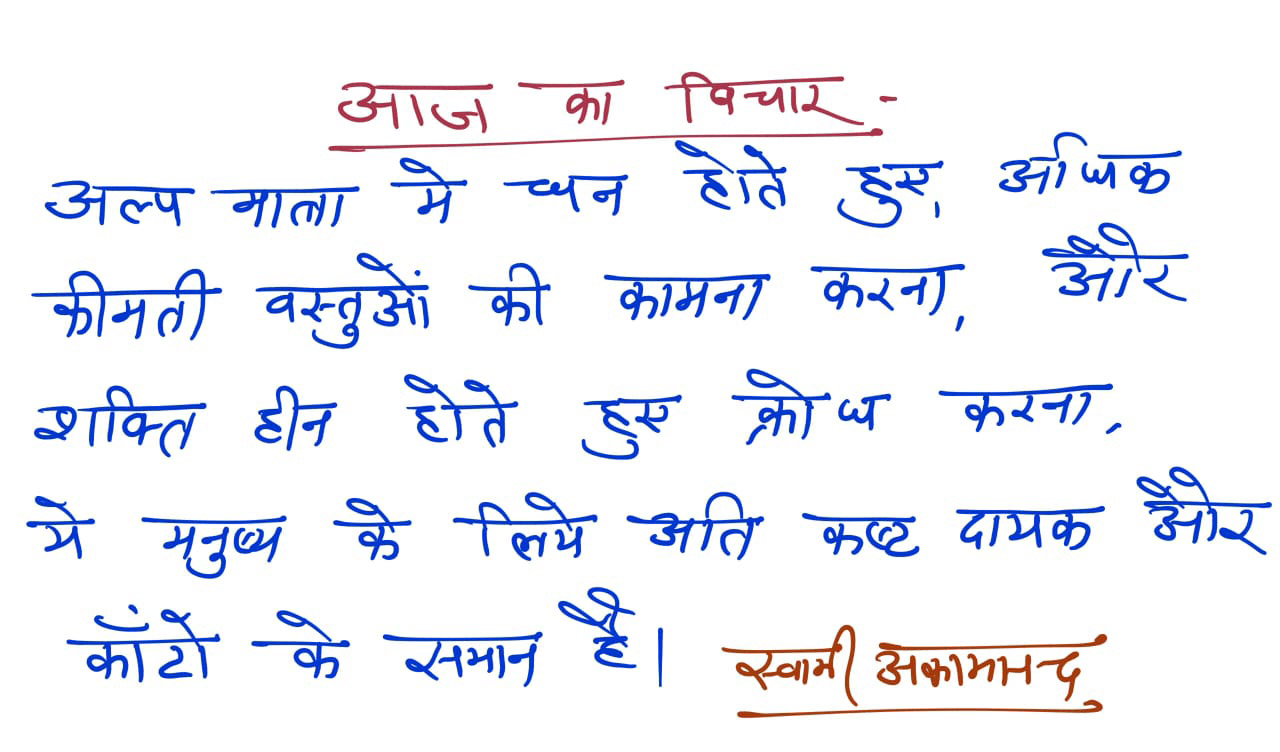 आज का विचार -
अल्प मात्रा मे धन होते हुए, अधिक
कीमती वस्तुओं की कामना करना, और
शक्ति हीन होते हुए क्रोध करना,
ये मनुष्य के लिये अति कष्ट दायक और
काँटो के समान है। स्वामी अकामानन्द